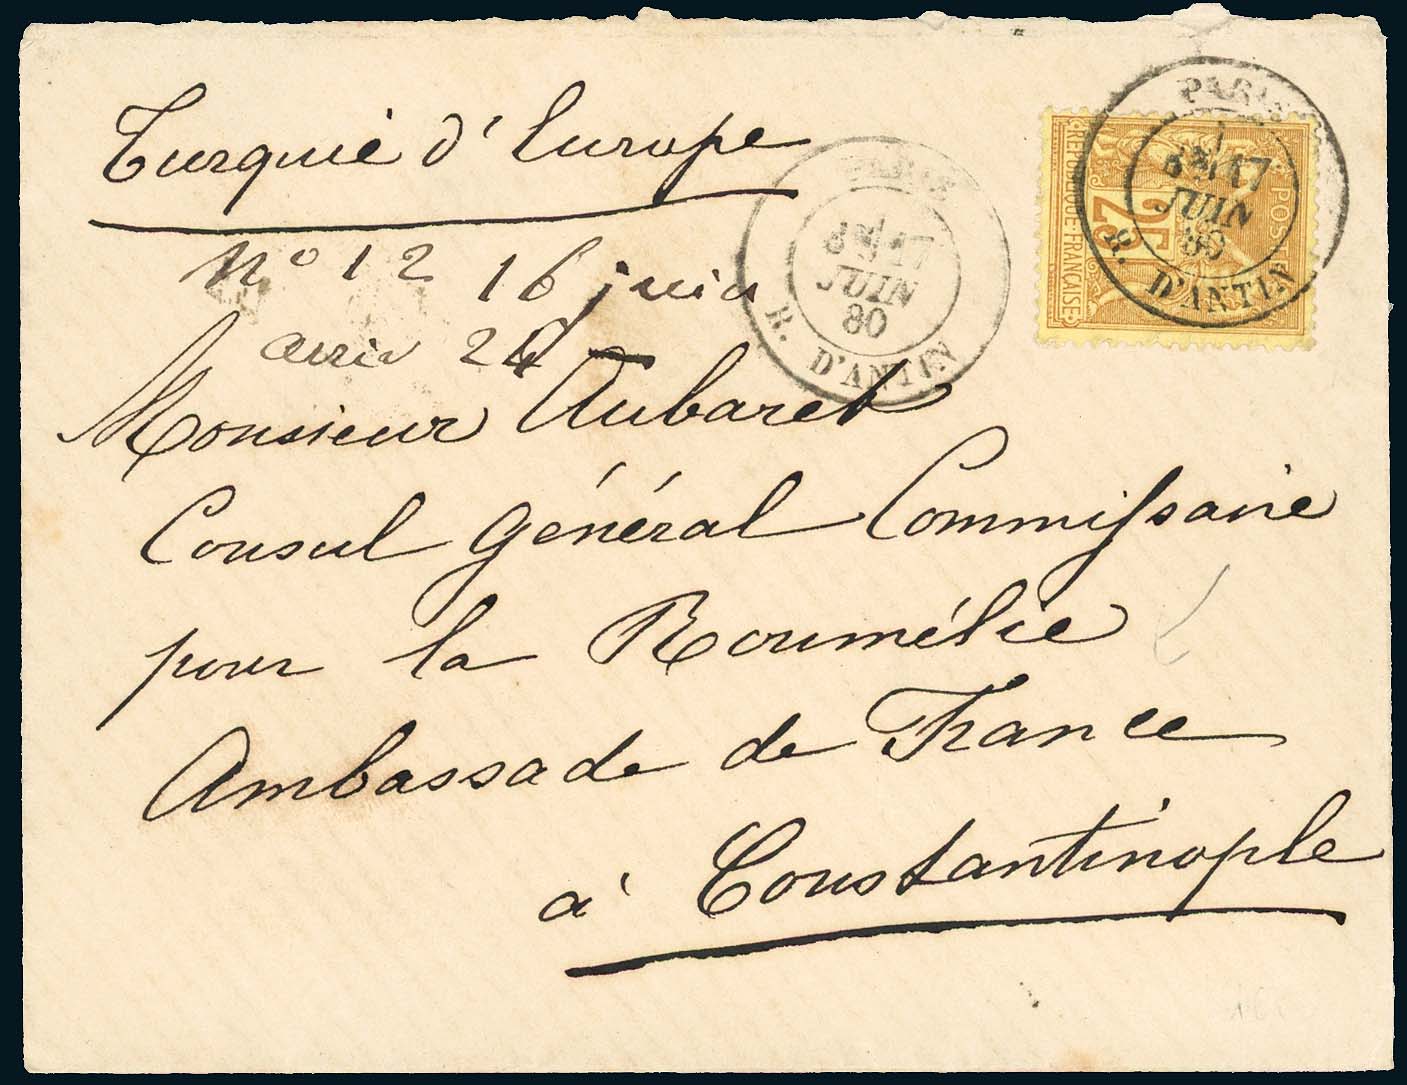 Turquie d'Europe
N° 12 16 juin
PARIS
17
JUIN
80
R. D'ANTIN
PARIS
17
JUIN
80
R. D'ANTIN
POSTES
25
RÉPUBLIQUE FRANÇAISE
Monsieur Aubaret
Consul Général Commissaire
pour la Roumélie
Ambassade de France
à Constantinople